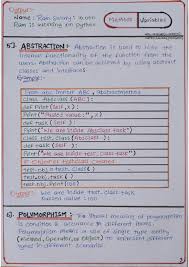 Output:
Name: Ram Salary: 10000
Ram is working on python
Method Variables
5.) ABSTRACTION: Abstraction is used to hide the
internal functionality of the function from the
users. Abstraction can be achieved by using abstract
classes and interfaces
Syntax:
from abc import ABC, abstractmethod
class Absclass (ABC):
def Print (self, x):
Print("Passed value:", x)
def task (self):
Print("We are inside Absclass task")
class test_class (Absclass):
def task (self):
Print("We are inside test_class task")
# object of test_class created
test_obj = test_class()
test_obj.task()
test_obj.Print(100)
Output: We are inside test_class task
Passed value: 100
6). POLYMORPHISM: The literal meaning of polymorphism
is condition of occurrence in different forms.
Polymorphism refers use of single type entity
(Method, operator, or object) to represent different
types in different scenarios